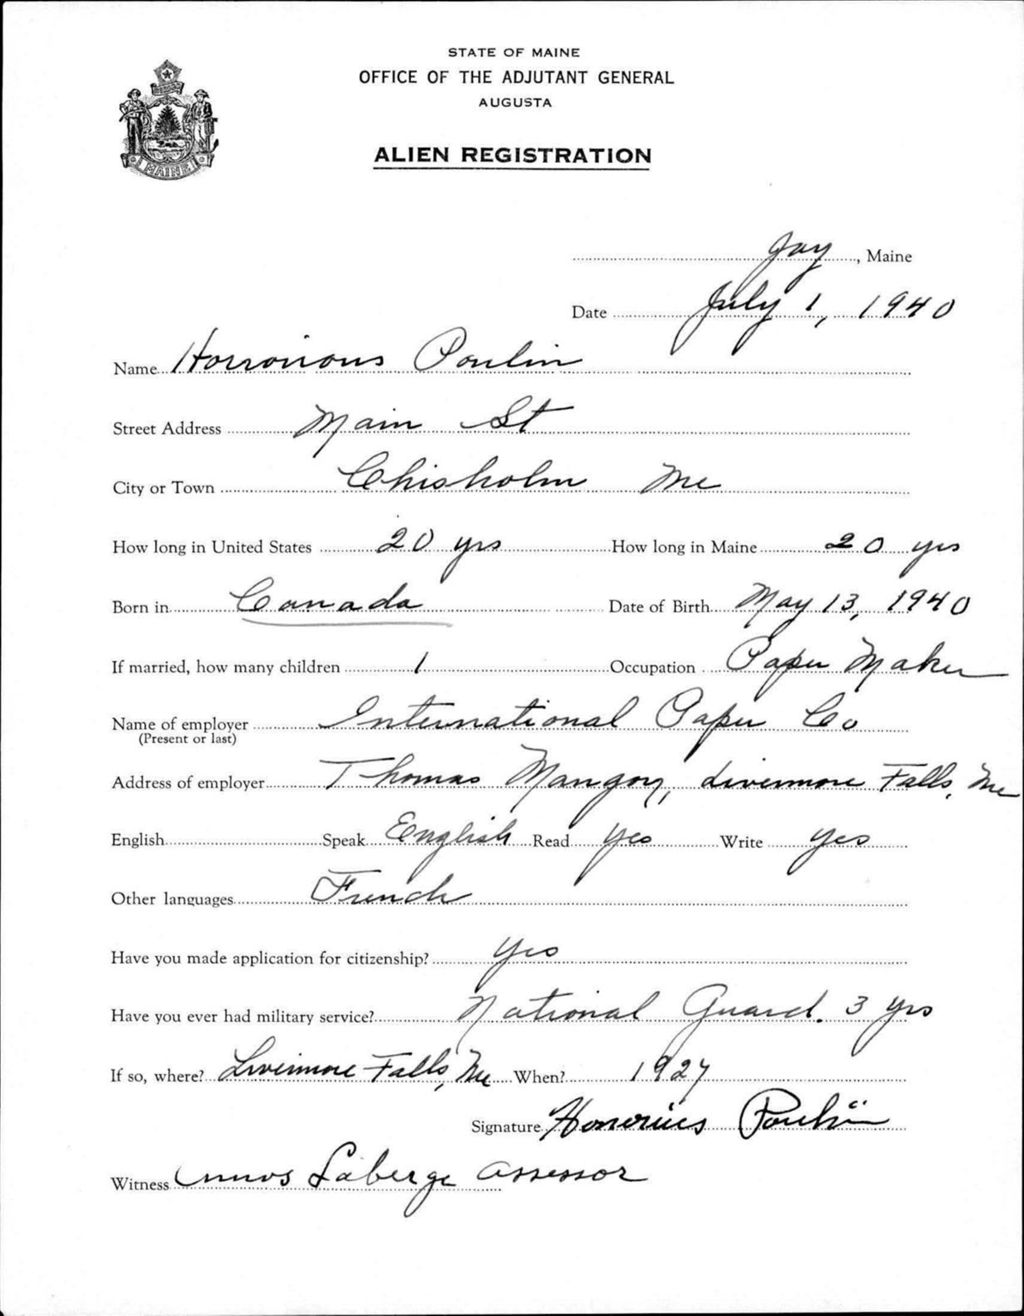 STATE OF MAINE
OFFICE OF THE ADJUTANT GENERAL
AUGUSTA
ALIEN REGISTRATION
MAINE
Jay, Maine
Date July 1, 1940
Name Honorious Poulin
Street Address Main St
City or Town Chisholm Me
How long in United States 20 yrs How long in Maine 20 yrs
Born in Canada Date of Birth May 13, 1940
If married, how many children 1 Occupation Paper Maker
Name of employer International Paper Co
(Present or last)
Address of employer Thomas Mangory, Livermore Falls, Me
English Speak English Read Yes Write Yes
Other languages French
Have you made application for citizenship? Yes
Have you ever had military service? National Guard. 3 yrs
If so, where? Livermore Falls, Me When? 1927
Signature Honorius Poulin
Witness Laberge Assessor